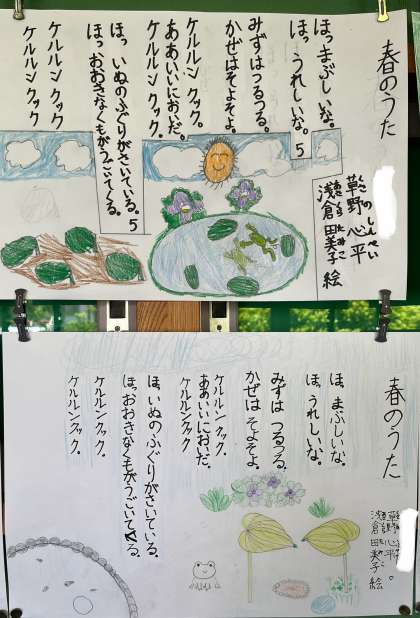 春のうた
鞍野 心平
くさの しんぺい
瀬倉 田美子 絵
ほっ まぶしいな。
ほっ うれしいな。
5
みずはつるつる。
かぜはそよそよ。
ケルルン クック。
ああいいにおいだ。
ケルルン クック。
ほっ いぬのふぐりがさいている。
ほっ おおきなくもがうごいてくる。
5
ケルルン クック。
ケルルン クック。
春のうた
心平
瀬倉 田美子 絵
ほっ まぶしいな。
ほっ うれしいな。
みずは つるつる。
かぜは そよそよ。
ケルルン クック。
ああいいにおいだ。
ケルルン クック。
ほっ いぬのふぐりがさいている。
ほっ おおきなくもがうごいてくる。
ケルルン クック。
ケルルン クック。